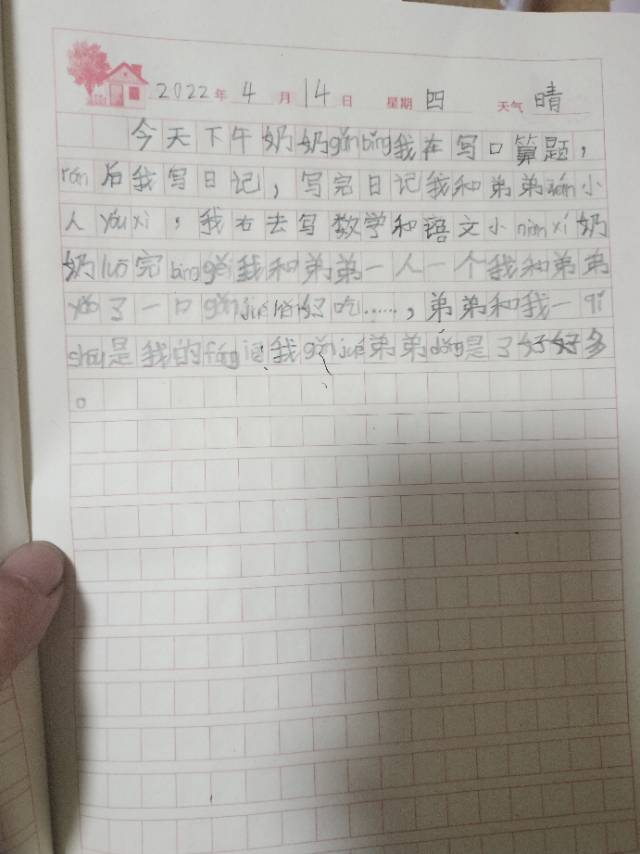 2022年 4月 14日 星期 四 天气 晴
今天下午奶奶gǎn bǐng我在写口算题，
rán后我写日记，写完日记我和弟弟wán小
人yóu xì，我右去写数学和语文小niàn xí奶
奶luō完bǐng gěi我和弟弟一人一个我和弟弟
yǎo了一口gǎn jué好吃……，弟弟和我一qǐ
shōu是我的fáng jiē我gǎn jué弟弟dǒng是了好好多
。